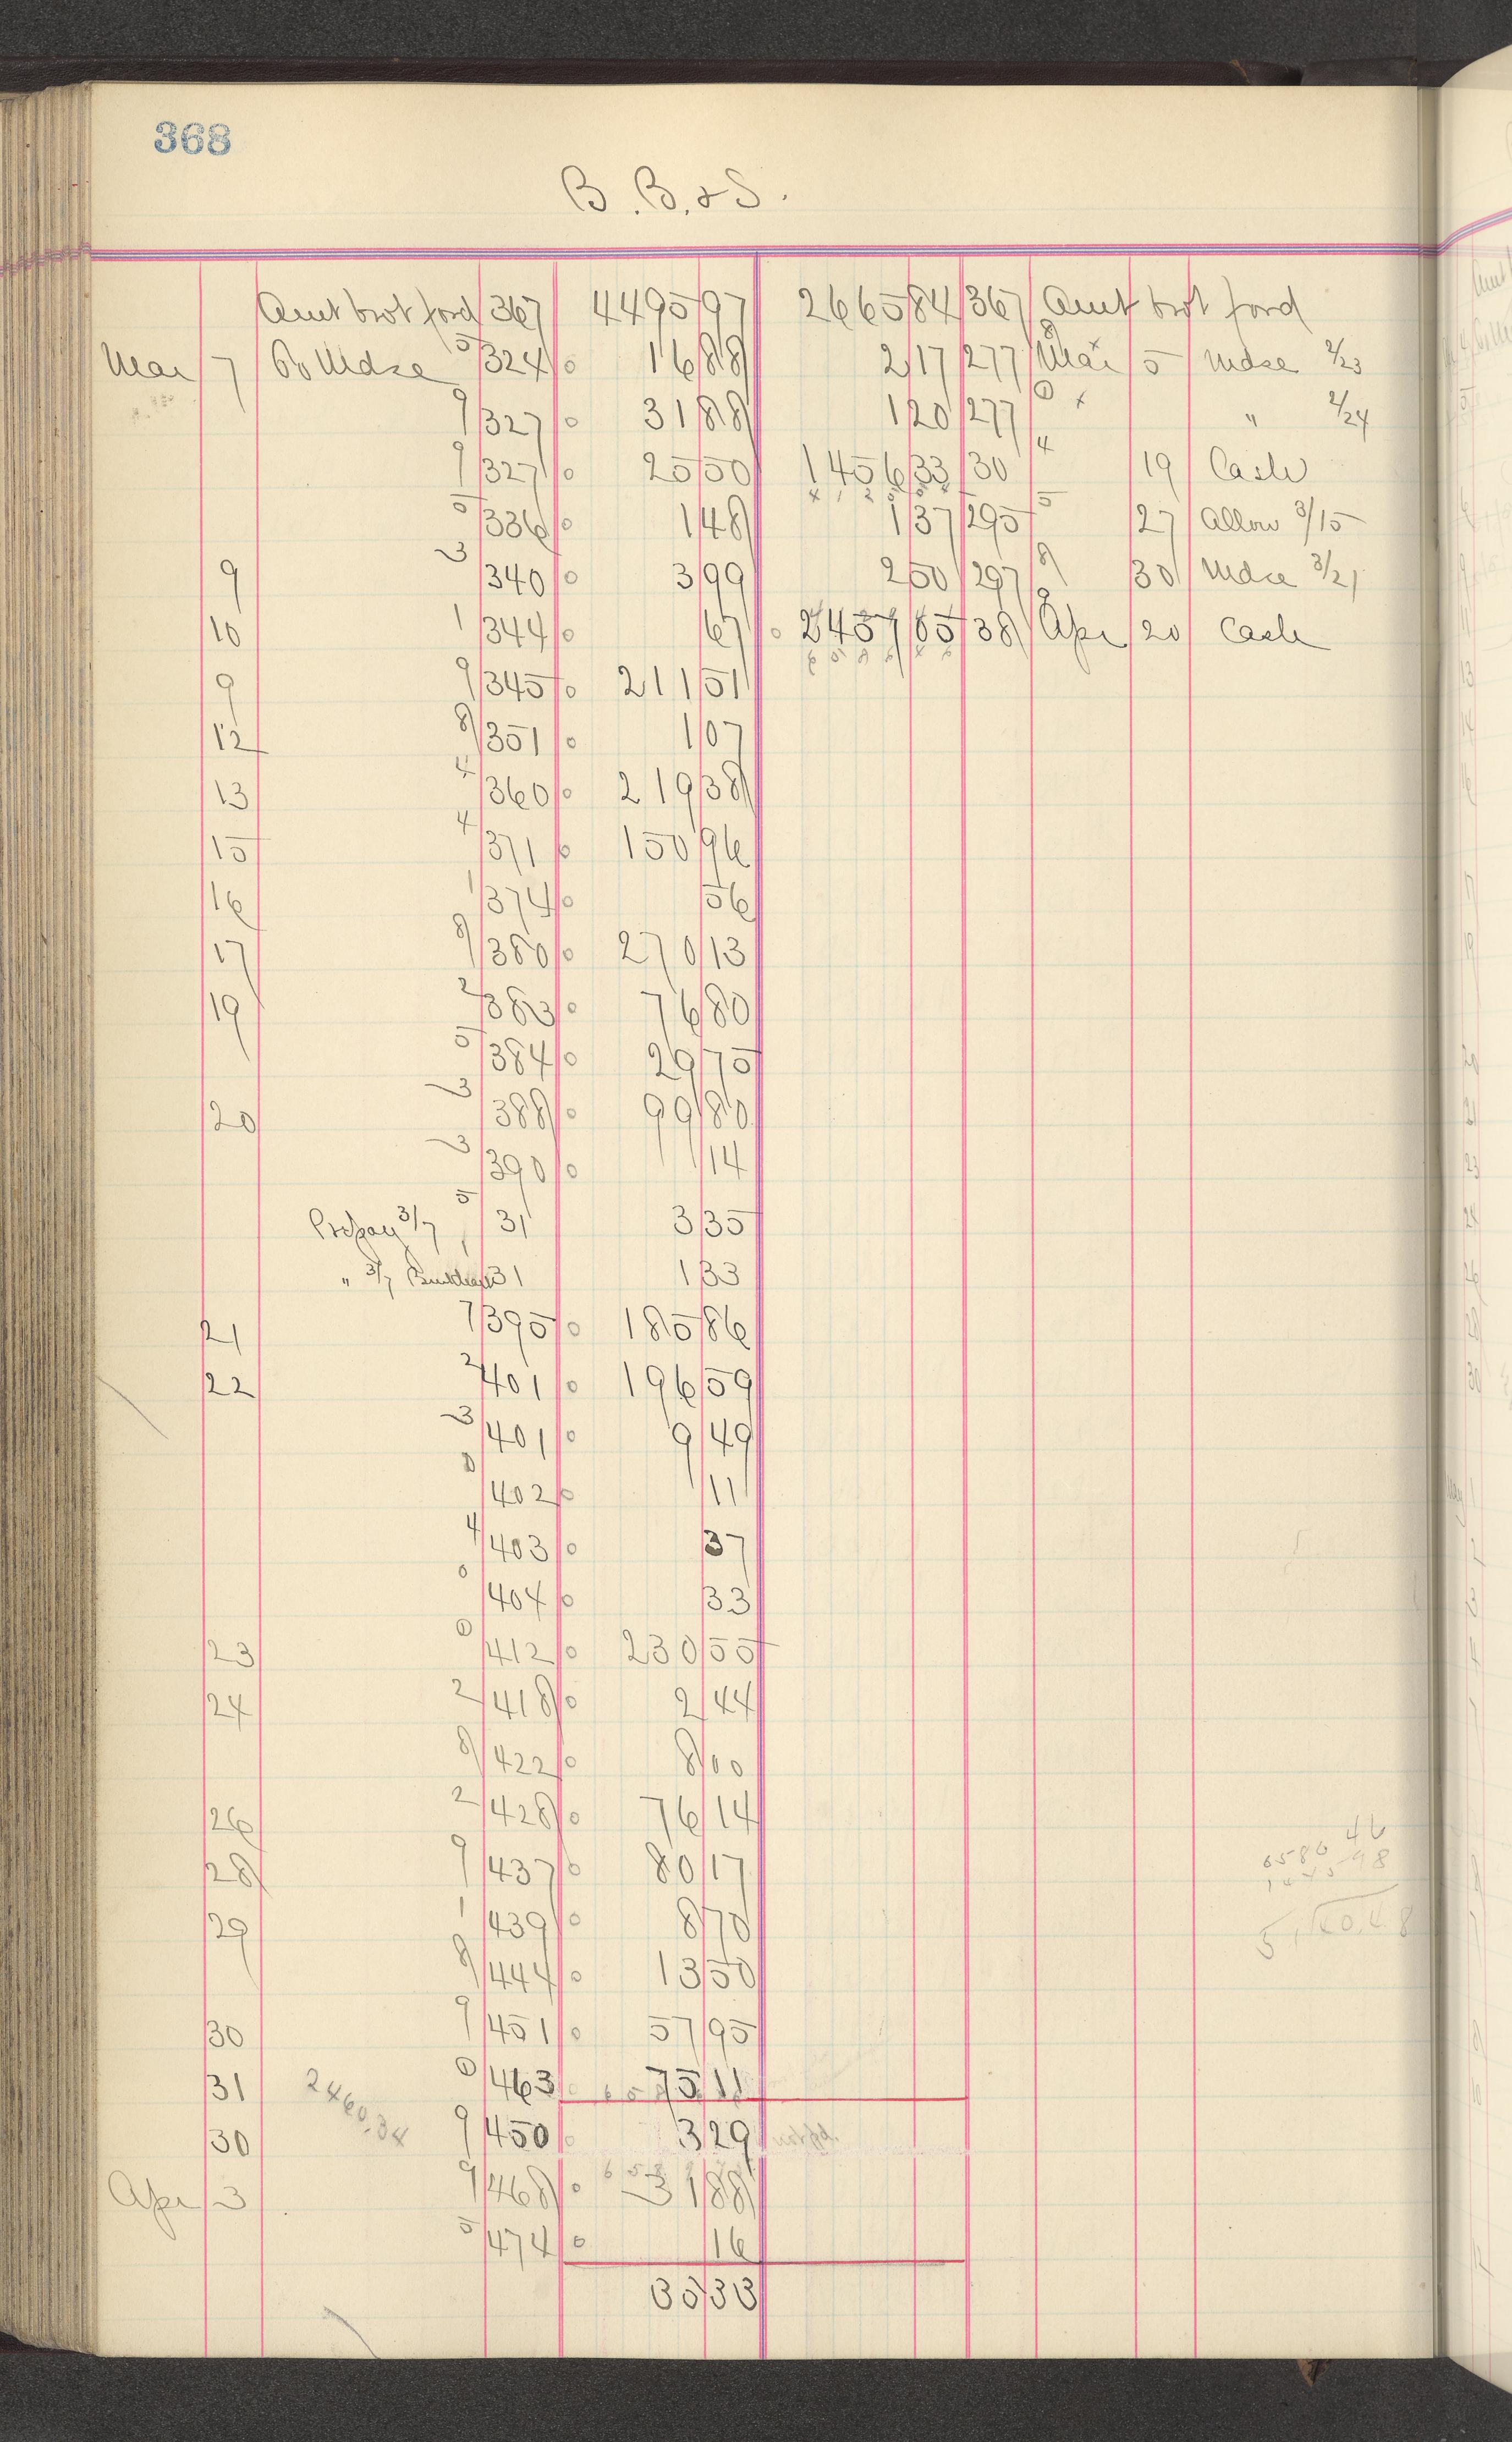 368
B. B. & S.
Amt brot ford 367 4495 97 2665 84 367 Amt brot ford
Mar 7 To Mdse 5 324 0 16 88 2 17 277 8 Mar 5 Mdse 2/23
9 327 0 31 88 1 20 277 0 x " 2/24
9 327 0 25 50 1456 33 30 4 19 Cash
5 336 0 1 48 1 37 295 5 27 Allow 3/15
9 3 340 0 3 99 2 50 297 8 30 Mdse 3/21
10 1 344 0 67 0 2457 85 38 9 Apr 20 Cash
9 9 345 0 211 51
12 8 351 0 1 07
13 4 360 0 219 38
15 4 371 0 150 96
16 1 374 0 56
17 8 380 0 270 13
19 2 383 0 76 80
5 384 0 29 75
20 3 388 0 99 80
3 390 0 14
Prepay 3/7 5 31 3 35
" 3/7 31 1 33
21 7 395 0 185 86
22 2 401 0 196 59
3 401 0 9 49
402 0 11
4 403 0 37
0 404 0 33
23 0 412 0 230 55
24 2 418 0 2 44
8 422 0 8 00
26 2 428 0 76 14
28 9 437 0 80 17
29 1 439 0 8 70
8 444 0 13 50
30 9 451 0 57 95
31 0 463 0 75 11
2460.34
30 9 450 0 3 29
Apr 3 9 468 0 31 88
5 474 0 16
35 33